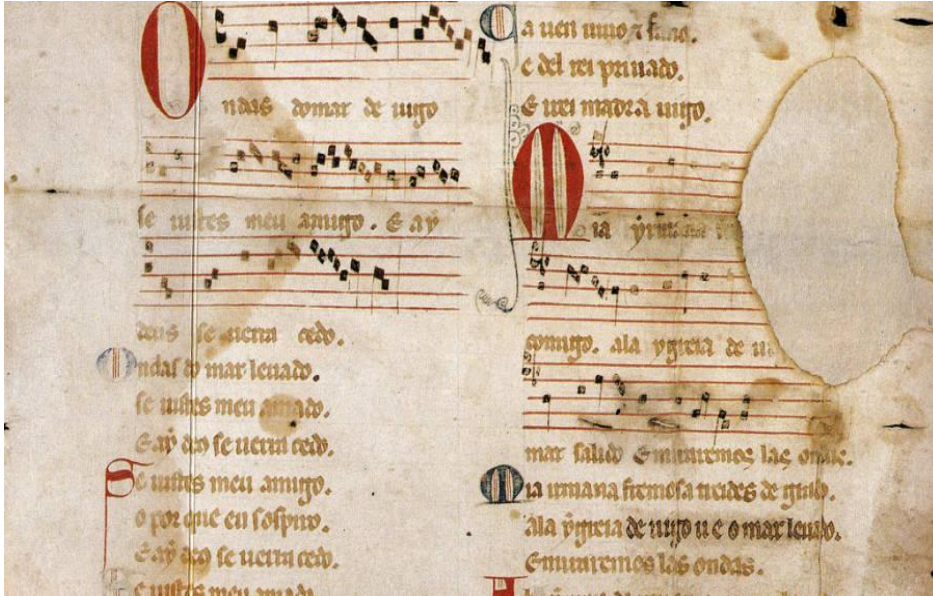 Ondas do mar de uigo
se uistes meu amigo. E aẏ
deus se uerra cedo.
Ondas do mar leuado.
se uistes meu amado.
E aẏ deo se uerra cedo.
Se uistes meu amigo.
o por que eu sospiro.
E aẏ deo se uerra cedo.
Se uistes meu amado
Ca uen uiuo ⁊ sano.
e del rei priuado.
E irei madra uigo.
Mia ẏrmana
comigo. ala ẏgreia de
mar salido E miraremos las ondas.
Mia irmana fremosa treides de grado.
ala ẏgreia de uigo u e o mar leuado.
E miraremos las ondas.